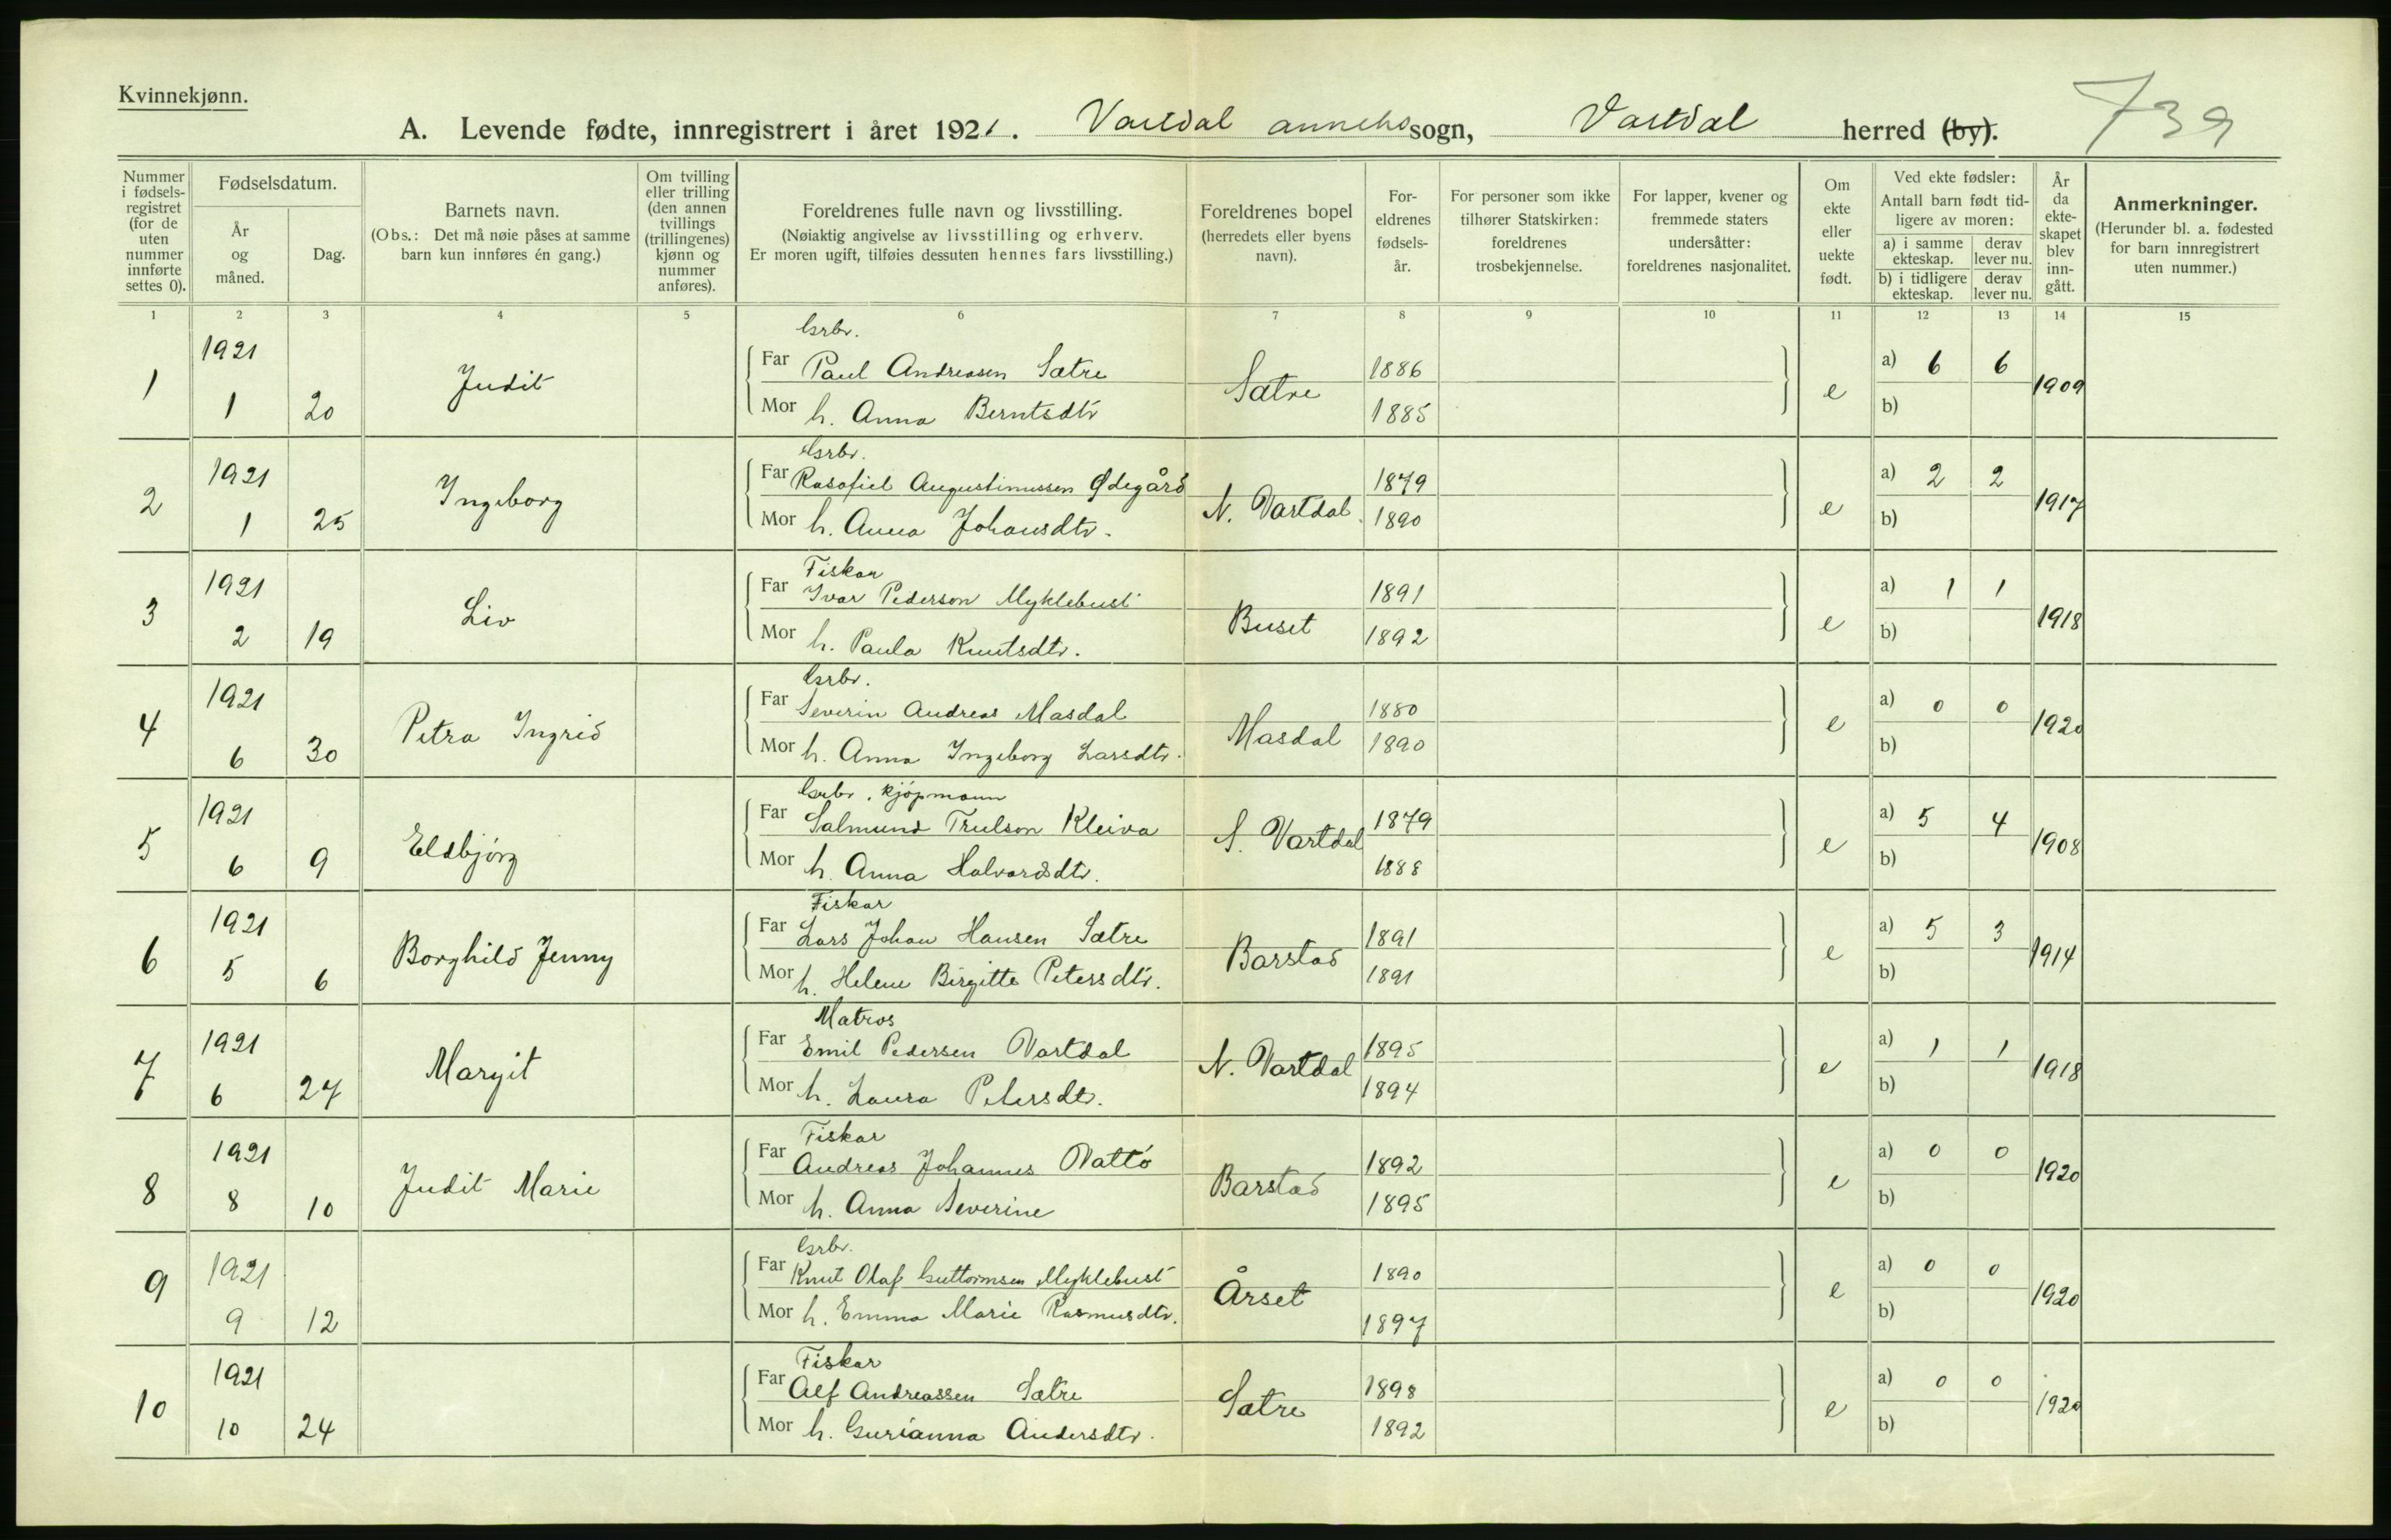 Kvinnekjønn.
A. Levende fødte, innregistrert i året 1921. Vartdal annekssogn, Vartdal herred (by). 739
Nummer i fødselsregistret (for de uten nummer innførte settes 0).
Fødselsdatum.
År og måned.
Dag.
Barnets navn.
(Obs.: Det må nøie påses at samme barn kun innføres én gang.)
Om tvilling eller trilling (den annen tvillings (trillingenes) kjønn og nummer anføres).
Foreldrenes fulle navn og livsstilling.
(Nøiaktig angivelse av livsstilling og erhverv.
Er moren ugift, tilføies dessuten hennes fars livsstilling.)
Foreldrenes bopel
(herredets eller byens navn).
Foreldrenes fødselsår.
For personer som ikke tilhører Statskirken: foreldrenes trosbekjennelse.
For lapper, kvener og fremmede staters undersåtter: foreldrenes nasjonalitet.
Om ekte eller uekte født.
Ved ekte fødsler:
Antall barn født tidligere av moren:
a) i samme ekteskap.
derav lever nu.
b) i tidligere ekteskap.
derav lever nu.
År da ekteskapet blev inngått.
Anmerkninger.
(Herunder bl. a. fødested for barn innregistrert uten nummer.)
1 2 3 4 5 6 7 8 9 10 11 12 13 14 15
Grbr.
1 1921 Judit Far Paul Andreasen Sætre Sætre 1886 e a) 6 6 1909
1 20 Mor h. Anna Berntsdtr 1885 b)
Grbr.
2 1921 Ingeborg Far Rasofiel Augustinussen Ødegård N. Vartdal 1879 e a) 2 2 1917
1 25 Mor h. Anna Johansdtr. 1890 b)
Fiskar
3 1921 Liv Far Ivar Pederson Myklebust Buset 1891 e a) 1 1 1918
2 19 Mor h. Paula Knutsdtr. 1892 b)
Grbr.
4 1921 Petra Ingrid Far Severin Andreas Masdal Masdal 1880 e a) 0 0 1920
6 30 Mor h. Anna Ingeborg Larsdtr. 1890 b)
Grbr. kjøpmann
5 1921 Eldbjørg Far Salmund Trulson Kleiva S. Vartdal 1879 e a) 5 4 1908
6 9 Mor h. Anna Halvardsdtr. 1888 b)
Fiskar
6 1921 Borghild Jenny Far Lars Johan Hansen Sætre Barstad 1891 e a) 5 3 1914
5 6 Mor h. Helene Birgitte Petersdtr. 1891 b)
Matros
7 1921 Margit Far Emil Pedersen Vartdal N. Vartdal 1895 e a) 1 1 1918
6 27 Mor h. Laura Petersdtr. 1894 b)
Fiskar
8 1921 Judit Marie Far Andreas Johannes Vattø Barstad 1892 e a) 0 0 1920
8 10 Mor h. Anna Severine 1895 b)
Grbr.
9 1921 Far Knut Olaf Guttormsen Myklebust Årset 1890 e a) 0 0 1920
9 12 Mor h. Emma Marie Rasmusdtr. 1897 b)
Fiskar
10 1921 Far Alf Andreassen Sætre Sætre 1898 e a) 0 0 1920
10 24 Mor h. Gurianna Andersdtr. 1892 b)